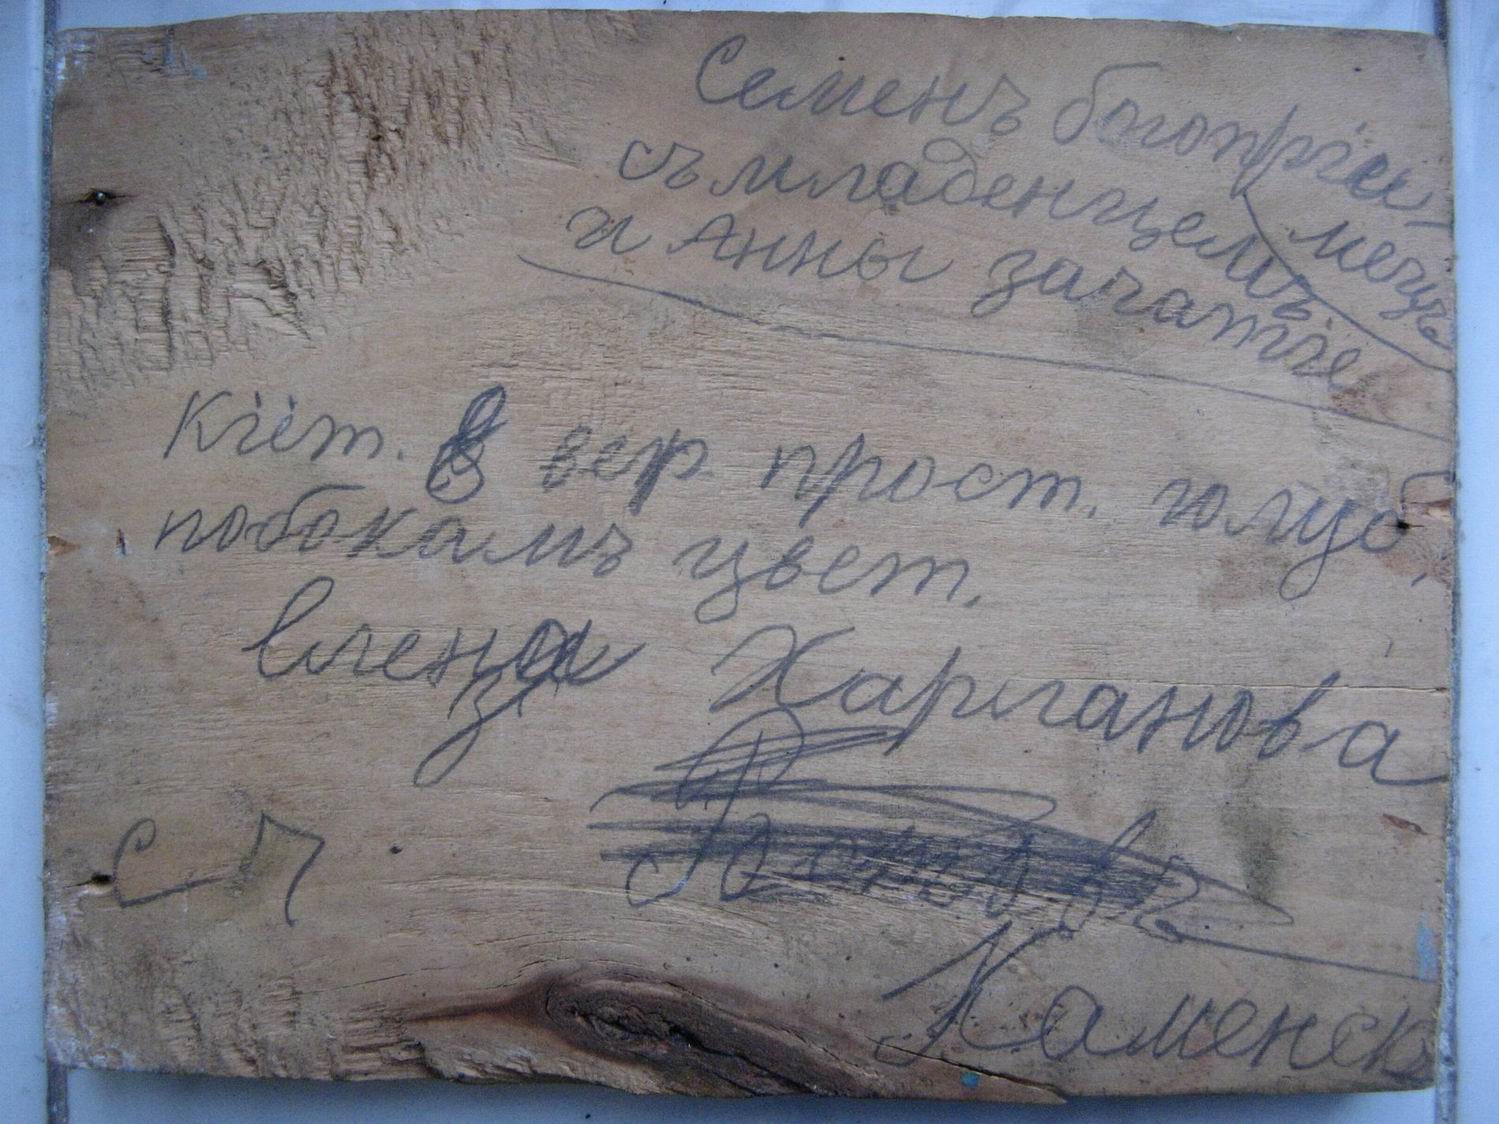 Семенъ богопріи-
мецъ
съ младенцемъ
и Анны зачатіе
Кіет. В вер прост. голуб.
побокамъ цвет.
Харганова
С П
Каменск